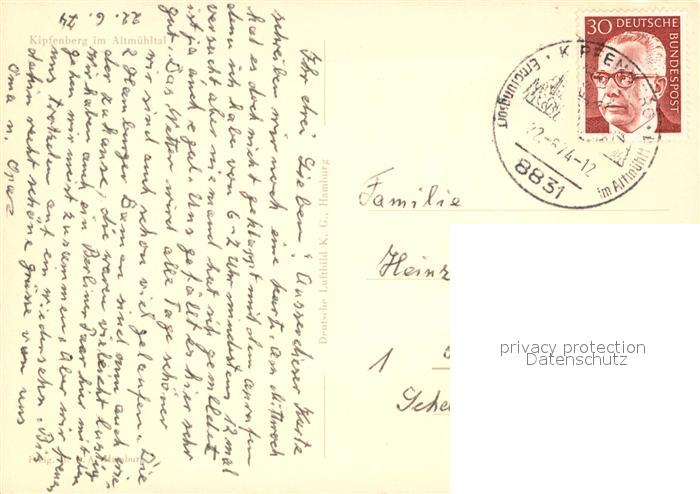 Kipfenberg im Altmühltal
22. 6. 74
Ihr drei Lieben! Ausserdem Heute
schreiben wir noch eine Karte. Am Mittwoch
hat es doch nicht geklappt mit dem anrufen
denn ich habe von 6-7 Uhr mindestens 12 mal
versucht aber niemand hat sich gemeldet
ist ja auch egal. Uns gefällt es hier sehr
gut. Das Wetter wird alle Tage schöner
wir sind auch schon viel gelaufen. Die
2 Hamburger Damen sind nun auch wie
der zuhause, die waren vielleicht lustig
Wir haben auch ein Berliner Paar hier mit den
gehn wir meist zusammen. Aber wir freuen
uns trotzdem auf ein wiedersehn. Bis
dahin recht schöne grüsse von uns
Oma u. Opa
Deutsche Luftbild K. G., Hamburg
30 DEUTSCHE
BUNDESPOST
KIPFENBERG
Erholungsort
22.-6.74-12
8831
im Altmühltal
Familie
Heinz
1
Sche
privacy protection
Datenschutz